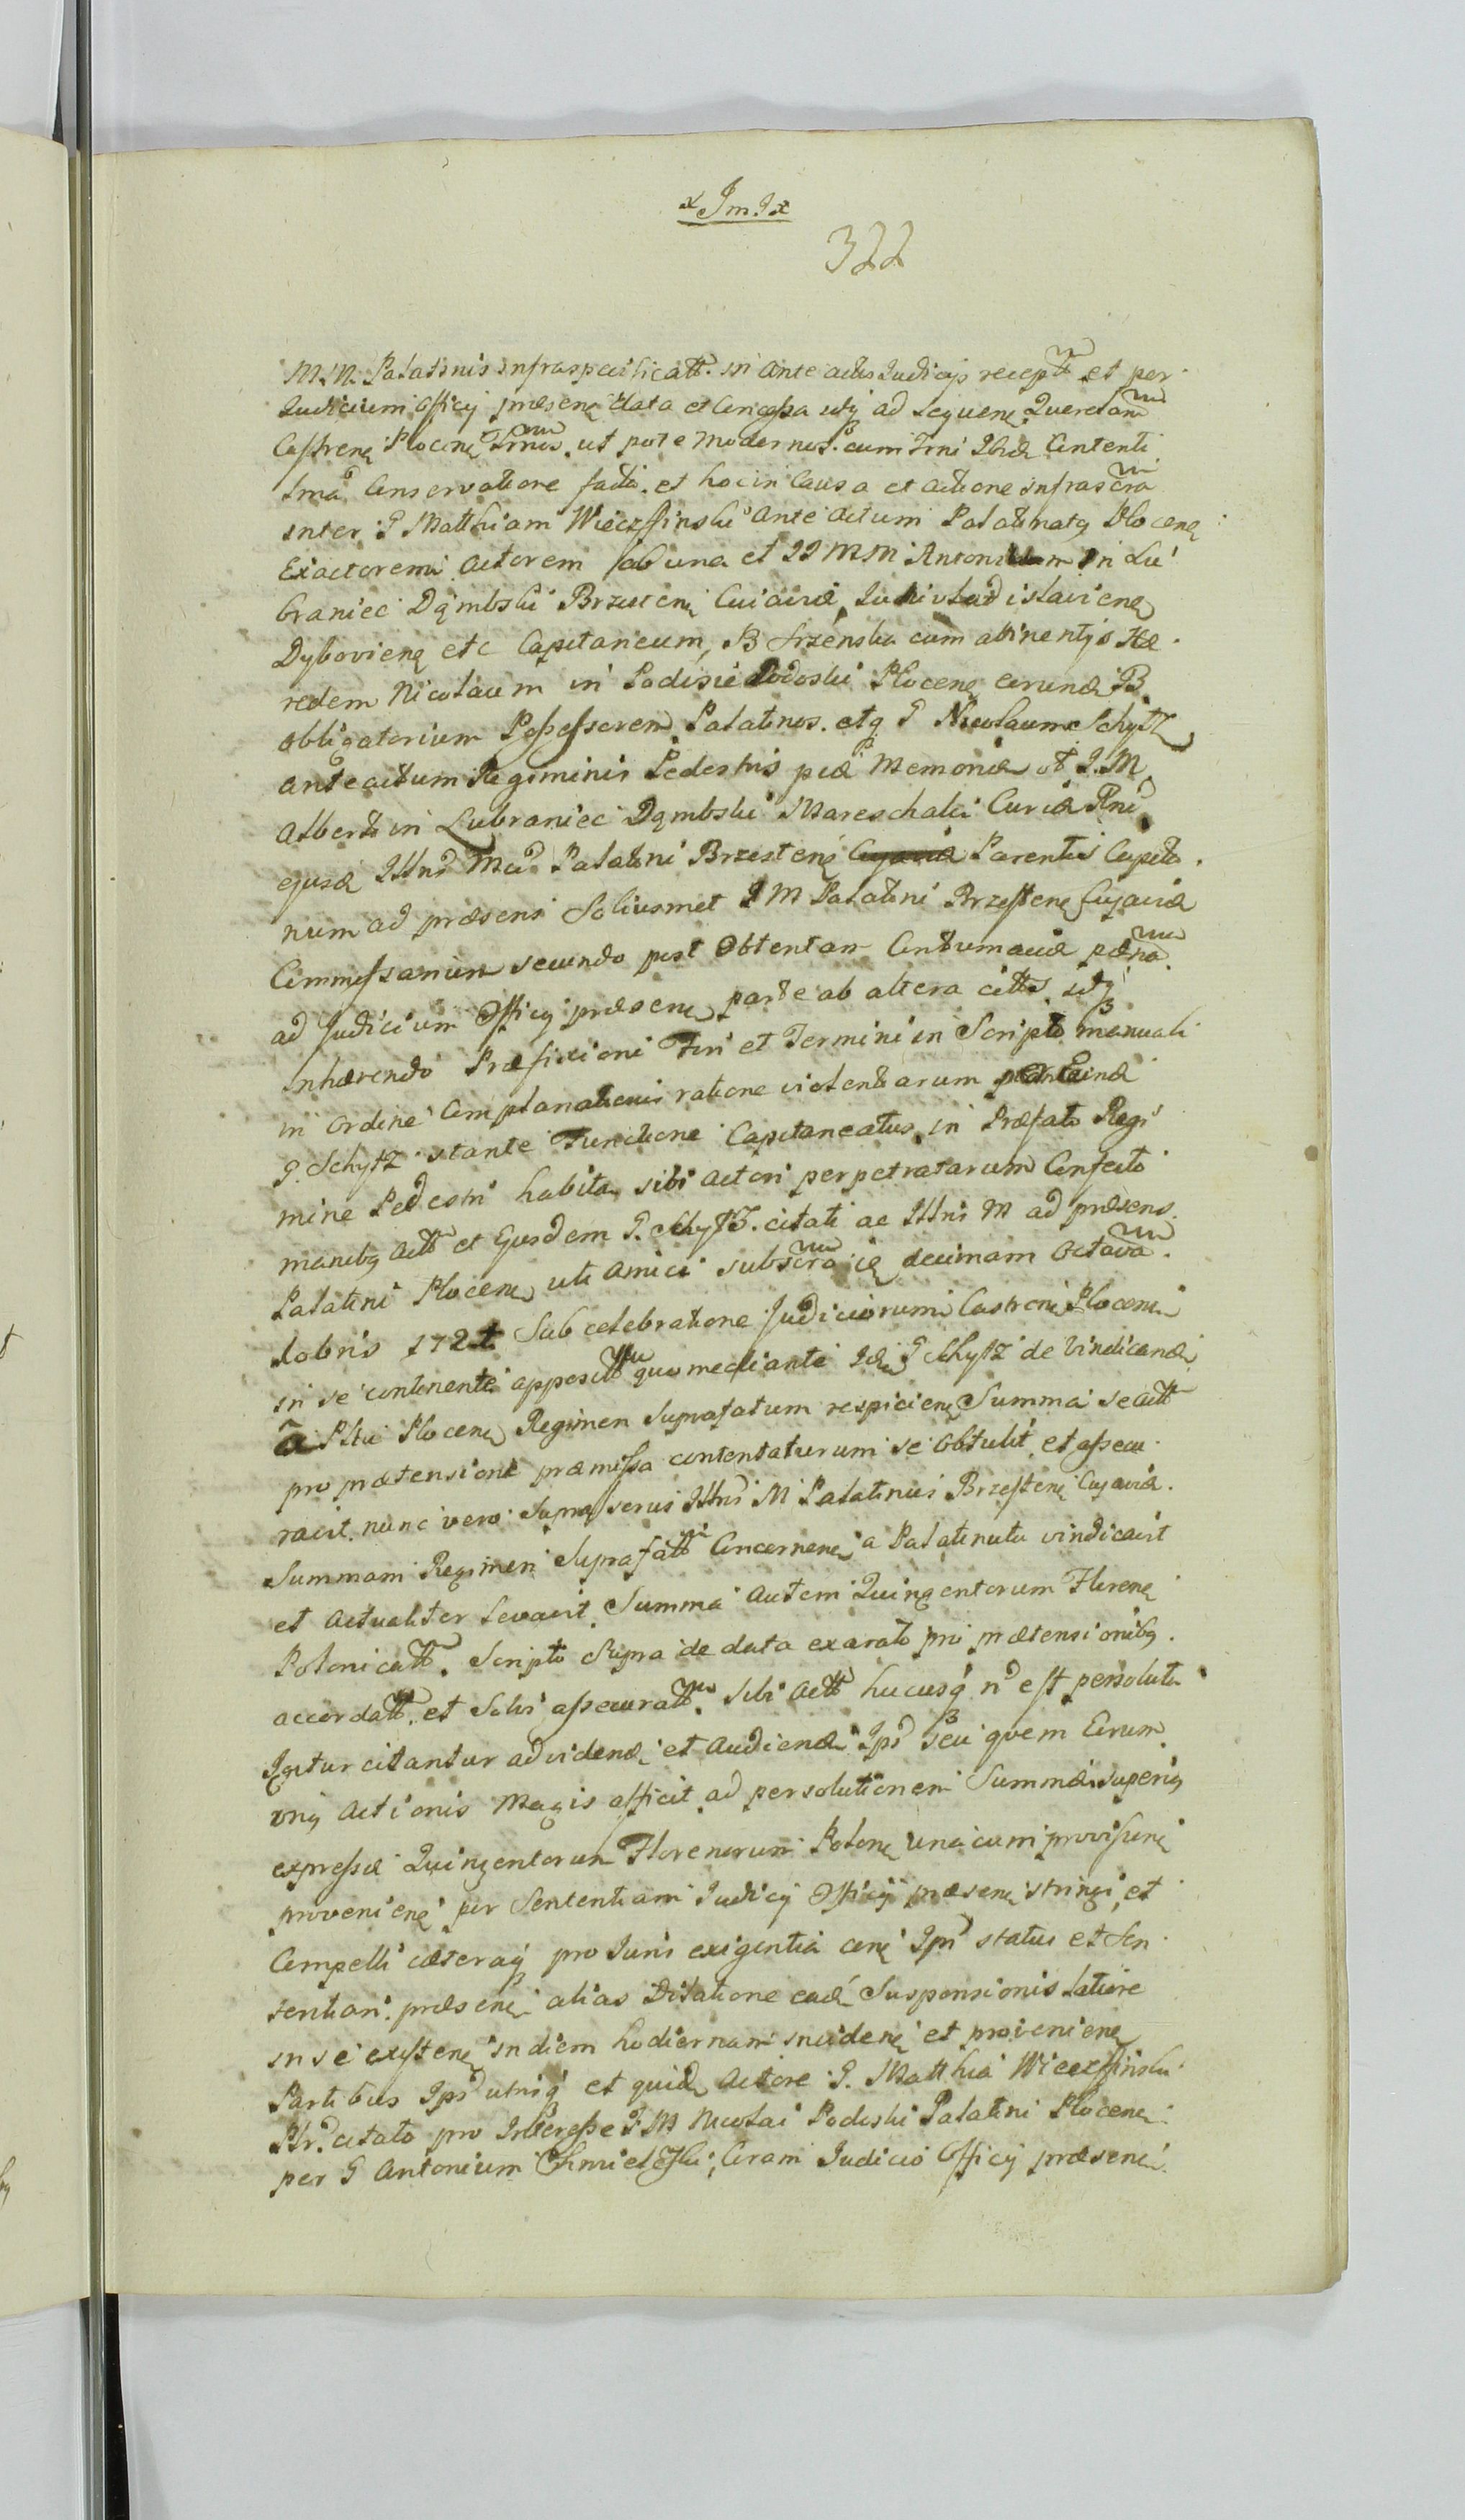 x Im. I x
322
M. N. Palatinis infraspecificatt. in ante actis Judicijs recept et per
Judicium Officij præsenę data et Concessa utqꝫ ad Sequenę Querelam
Castrenę Plocenę ut pote Modernos. cum Contenti
Conservatione facta. et hoc in Causa et actione infrascra
inter G Matthiam Wieczffinski ante actum Palatinatę Plocenę
Exactorem Actorem ab una et II MM Antonium in Lu
braniec Dąmbski Brzestenę Cuiaviæ, Junivladislavienę
Dybovienę etc Capitaneum, B Srzensko cum attinentijs Hæ
redem Nicolaum in Podosie Podoski Plocenę eorund B
obligatorium Possessorem Palatinos. etq G Nicolaum Schÿtz
ante actum Regiminis Pedestris piæ Memoriæ ol I. M.
Alberti in Lubraniec Dąmbski Mareschalci Curiæ Rni
ejusd Illris Palatini Brzestenę Parentis Capita
neum ad præsens Soliusmet I M Palatini Brzestenę Cujaviæ
Commissarium secundo post Obtentam Contumaciæ pæna
ad Judicium Officij præsenę parte ab altera citts. idqꝫ
Inhærendo Præfixioni Fori et Termini in Scripto manuali
in ordine Complanationis ratione violentiarum
G. Schÿtz stante Functione Capitaneatus in Præfato Regi
mine Pedestri habita, sibi Actori perpetratarum Confecto
manibę Actt et Ejusdem G. Schÿtz. citati ac Illris M ad præsens
Palatini Plocenę uti Amici subscra decimam Octava.
tobris 172 Sub celebratione Judiciorum Castrenę Plocenę
in se continenti quo mediante Idę G Schÿtz de Vindicandę
a Plocenę Regimen Suprafatum respicienę Summa se Actt
pro prætensione præmissa contentaturum se obtulit et assecu
ravit. nunc vero Supra serius Illris M Palatinus Brzestenę Cujaviæ.
Summam Regimen Suprafatt Concernenę a Palatinatu vindicavit
et actualiter levavit. Summa autem Quingentorum Florenę
Polonicatt. Scripto Supra de data exarato pro prætensionibę
accordatt. et Solvi assecuratt. sibi Actt hucusqꝫ n est persoluta
Igitur citantur ad videndę et Audiendę Ipſ seu quem Eorum
onę Actionis Magis afficit ad persolutionem Summæ superię
expressæ Quingentorum Florenorum Polonę unacum provisione
provenienę per Sententiam Judicij Officij præsenę stringi, et
Compelli cæteraqꝫ pro Juris exigentia Ipſ statui et Sen
tentiari. præsenę alias Dilatione ead Suspensionis latiore
in se existenę in diem hodiernam incidenę et provenienę
Partibus Ipſ utrisqꝫ et quidę Actore G. Matthia Wieczffinski
citato pro Interesse I M Nicolai Podoski Palatini Plocenę
per G Antonium Chmieleski, Coram Judicio Officij præsenę